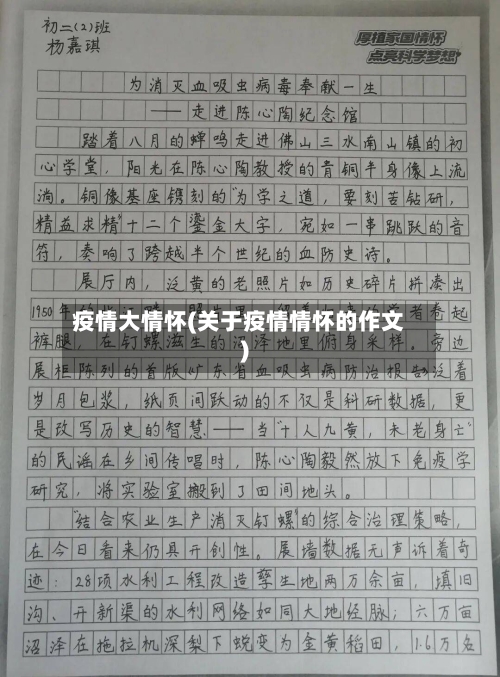 初二(2)班
杨嘉琪
厚植家国情怀
点亮科学梦想
为消灭血吸虫病毒奉献一生
——走进陈心陶纪念馆
踏着八月的蝉鸣走进佛山三水南山镇的初
心学堂，阳光在陈心陶教授的青铜半身像上流
淌。铜像基座镌刻的"为学之道，要刻苦钻研，
精益求精"十二个鎏金大字，宛如一串跳跃的音
符，奏响了跨越半个世纪的血防史诗。
展厅内，泛黄的老照片如历史碎片拼凑出
1950年的 卷起
疫情大情怀(关于疫情情怀的作文
)
裤腿，在钉螺滋生的沼泽地里俯身采样。旁边
展柜陈列的首版《广东省血吸虫病防治报告》泛着
岁月包浆，纸页间跃动的不仅是科研数据，更
是改写历史的智慧——当"十人九黄，未老身亡"
的民谣在乡间传唱时，陈心陶毅然放下免疫学
研究，将实验室搬到了田间地头。
"结合农业生产消灭钉螺"的综合治理策略，
在今日看来仍具开创性。展墙数据无声诉着奇
迹：28项水利工程改造孳生地两万余亩，填旧
沟、开新渠的水利网络如同大地经脉；六万亩
沼泽在拖拉机深犁下蜕变为金黄稻田，1.6万名